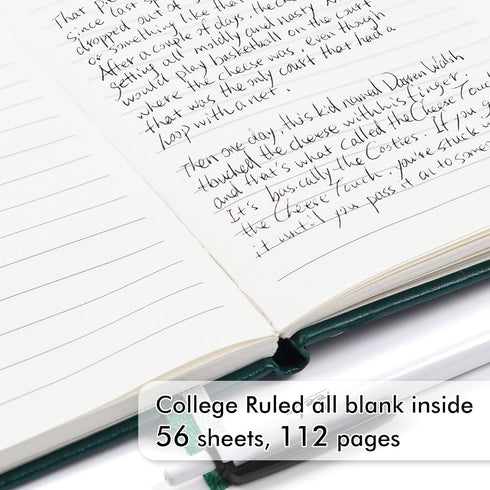 That Pi
Since last sp
dropped out of
or something like that
After a couple of days, the c
getting all moldy and nasty. N
would play basketball on the court
where the cheese was, even though
that was the only court that had a
hoop with a net.
Then one day, this kid named Darren Walsh
touched the cheese with his finger,
and that's what called the Cheese Touc
It's basically the Cooties. If you g
the Cheese Touch, you're stuck w
it until you pass it on to someo
College Ruled all blank inside
56 sheets, 112 pages